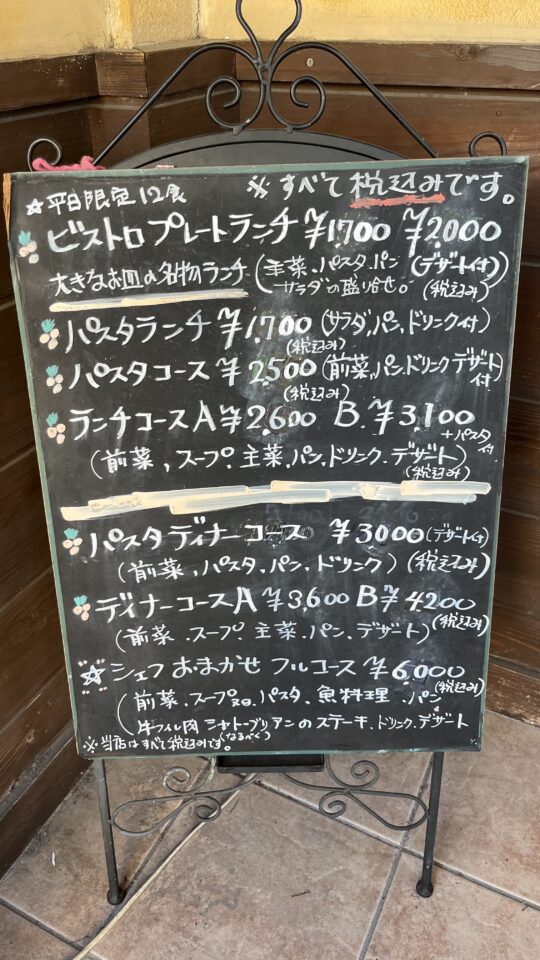 ☆平日限定12食 ※すべて税込みです。
ビストロプレートランチ ¥1700 ¥2000
大きなお皿の名物ランチ (主菜.パスタ.パン (デザート付)
サラダの盛り合せ。 (税込み)
パスタランチ ¥1,700 (サラダ,パン,ドリンク付)
(税込み)
パスタコース ¥2500 (前菜,パン.ドリンク デザート付
(税込み)
ランチコースA ¥2,600 B.¥3,100
+パスタ付
(前菜,スープ.主菜.パン.ドリンク.デザート)
(税込み)
パスタディナーコース ¥3000 (デザート付)
(前菜,パスタ,パン,ドリンク) (税込み)
ディナーコースA ¥3,600 B¥4200
(前菜.スープ.主菜.パン.デザート) (税込み)
☆シェフおまかせ フルコース ¥6,000
(税込み)
(前菜.スープ.パスタ.魚料理.パン
牛フィレ肉 シャトーブリアンのステーキ.ドリンク.デザート
※当店はすべて税込みです。(なるべく)